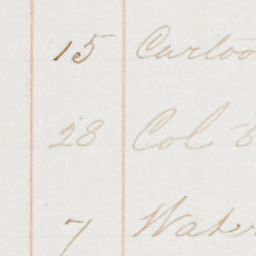 15 Cartoo
28 Col
7 Water